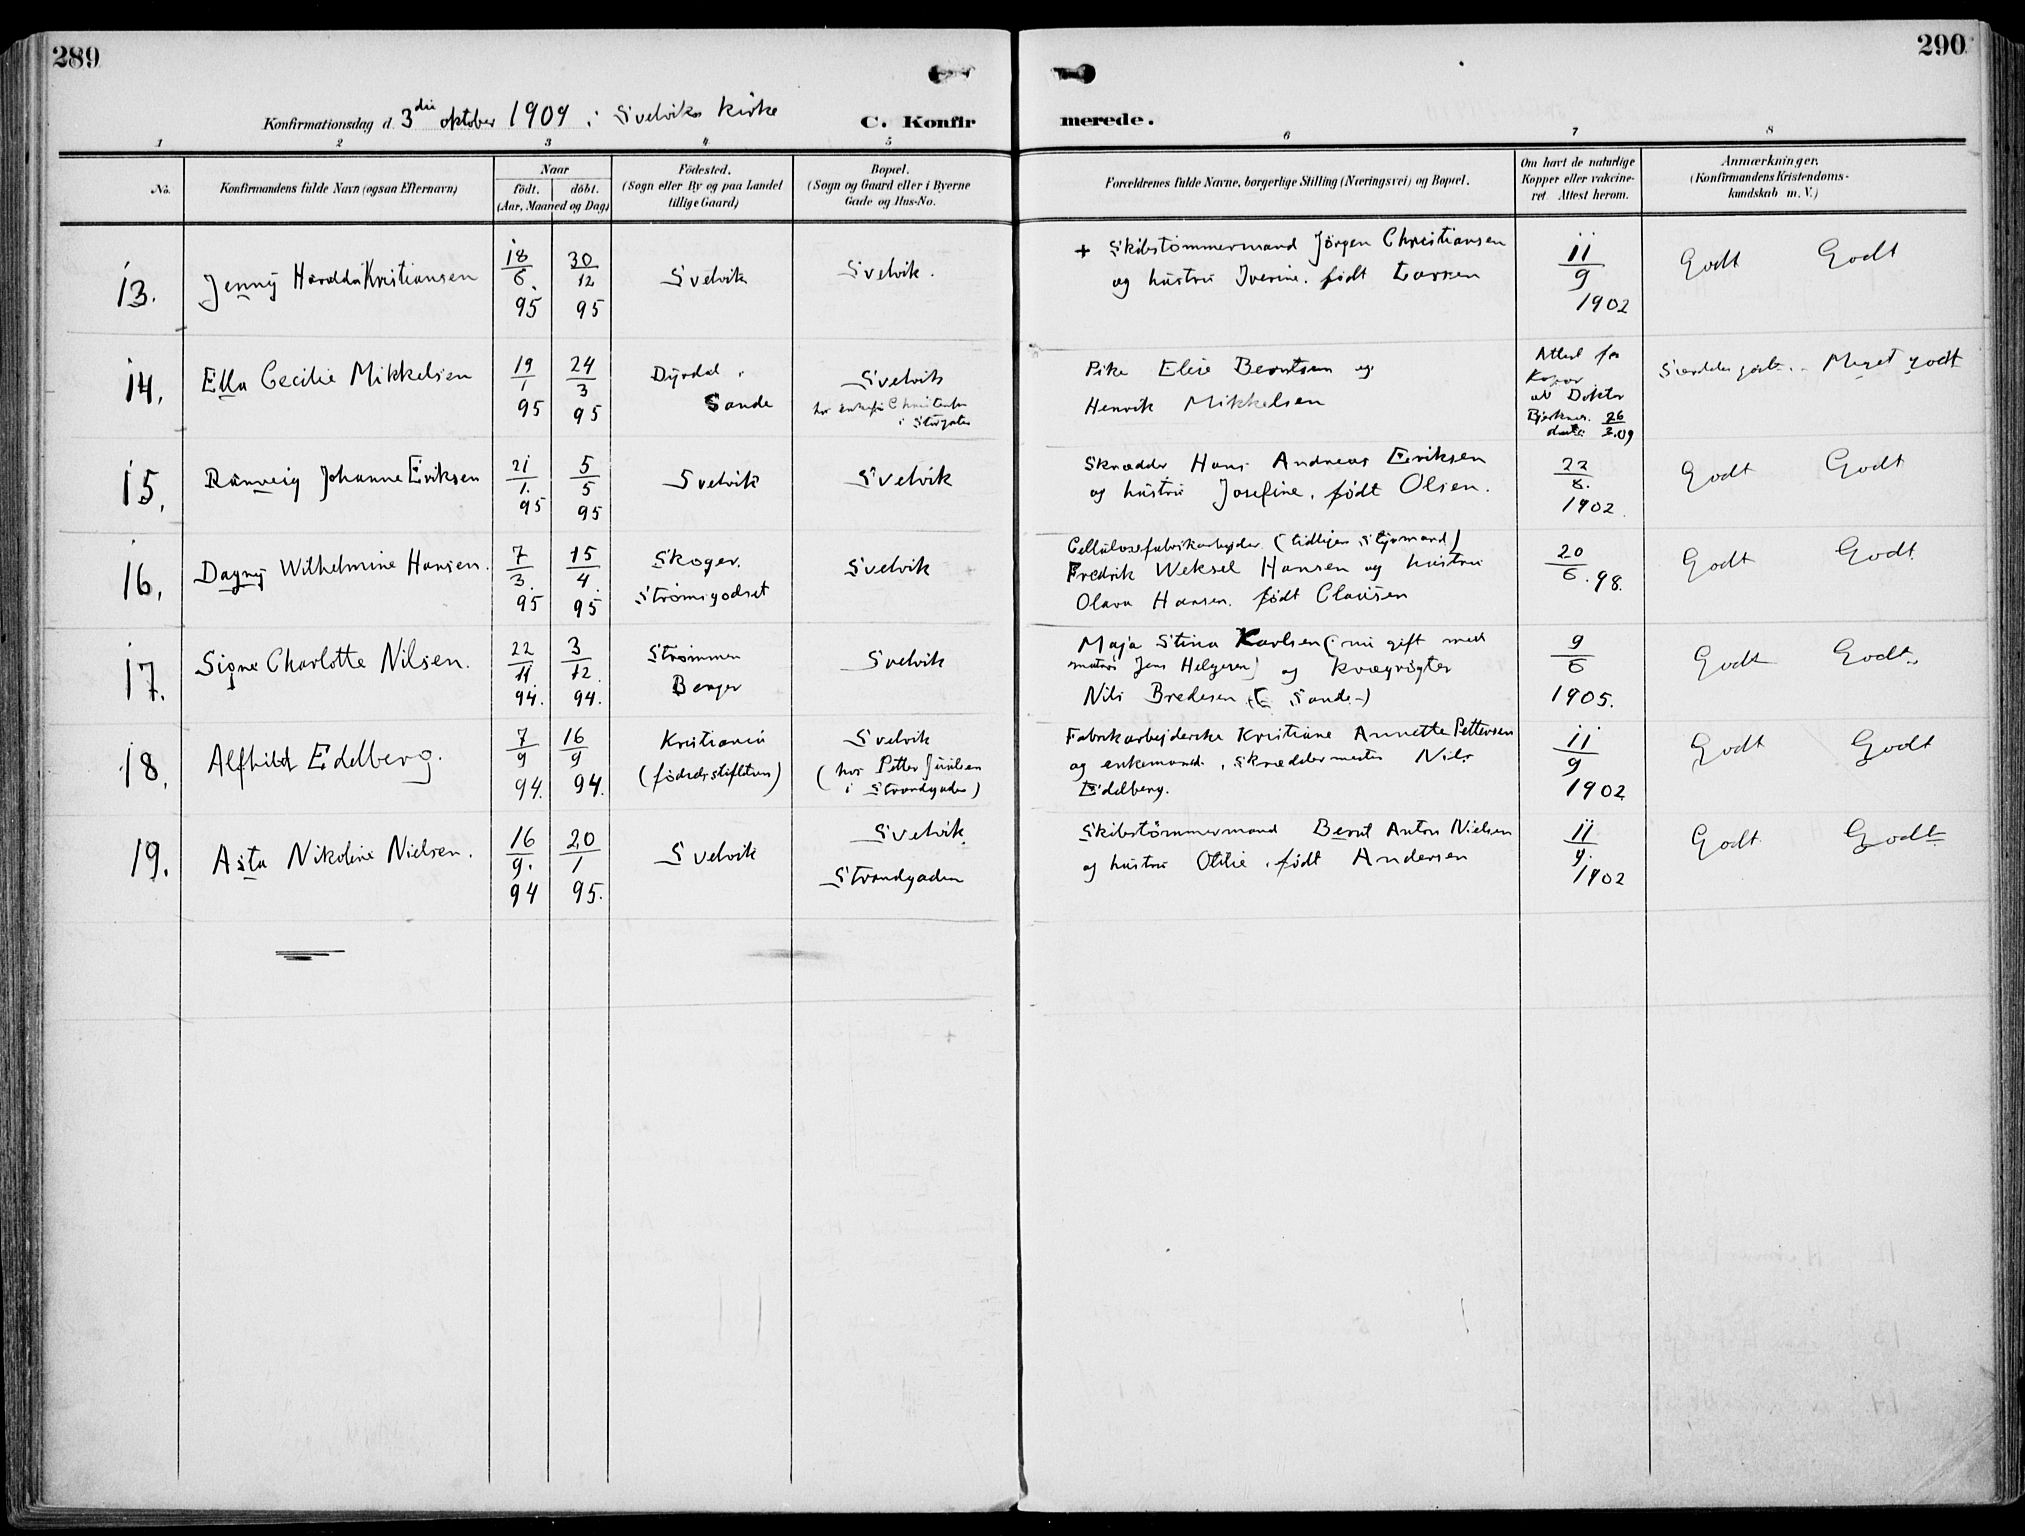 289
290
Konfirmationsdag d. 3die oktober 1909 i Svelviks kirke
C. Konfirmerede.
1 2 3 4 5 6 7 8
No.
Konfirmandens fulde Navn (ogsaa Efternavn)
Naar
født. døbt.
(Aar, Maaned og Dag)
Fødested.
(Sogn eller By og paa Landet
tillige Gaard)
Bopæl.
(Sogn og Gaard eller i Byerne
Gade og Hus-No.
Forældrenes fulde Navne, borgerlige Stilling (Næringsvei) og Bopæl.
Om havt de naturlige
Kopper eller vakcine-
ret. Attest herom.
Anmærkninger.
(Konfirmandens Kristendoms-
kundskab m. V.)
13. Jenny Haralda Kristiansen
18/6. 95
30/12 95
Svelvik
Svelvik.
+ Skibstømmermand Jörgen Christiansen
og hustru Iverine, født Larsen
11/9 1902
Godt Godt
14. Ella Cecilie Mikkelsen
19/1 95
24/3 95
Dyrdal i
Sande
Svelvik
i Storgaten
Pike Elise Berntsen og
Henrik Mikkelsen
Attest for
Kopor
av Doktor
26/3.09
Meget godt
15. Ranveig Johanne Eriksen
21/1. 95
5/5 95
Svelvik
Svelvik
Skrædder Hans Andreas Eriksen
og hustru Josefine, født Olsen.
22/8. 1902
Godt Godt
16. Dagny Wilhelmine Hansen.
7/3. 95
15/4. 95
Skoger.
Strømsgodset
Svelvik
Cellulosefabrikarbeider (tidligere Styrmand)
Fredrik Weksel Hansen og hustru
Olava Hansen. født Clausen
20/6. 98.
Godt Godt.
17. Signe Charlotte Nilsen.
22/11. 94.
3/12. 94.
Strømmen
Berger
Svelvik
Maja Stina Karlsen (nu gift med
matros Jens Helgesen) og kvægrøgter
Nils Bredesen (i Sande)
9/6 1905.
Godt Godt.
18. Alfhild Edelberg.
7/9 94.
16/9 94.
Kristiania
(fødselsstiftelsen)
Svelvik
(hos Petter Juulsen
i Strandgaden)
Fabrikarbejderske Kristiane Annette Pettersen
og enkemand, skræddermester Nils
Edelberg.
11/9 1902
Godt Godt
19. Asta Nikoline Nielsen.
16/9. 94
20/1 95.
Svelvik
Svelvik.
Strandgaden
Skibstömmermand Bernt Anton Nielsen
og hustru Otilie, født Andersen
11/9. 1902
Godt. Godt